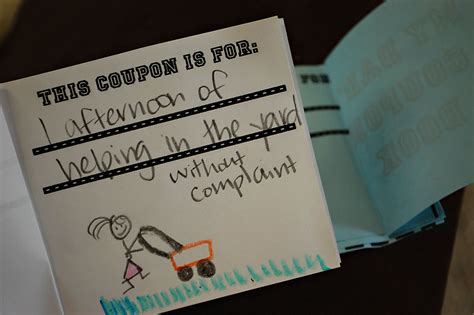 THIS COUPON IS FOR:
1 afternoon of
helping in the yard
without
complaint
FOR